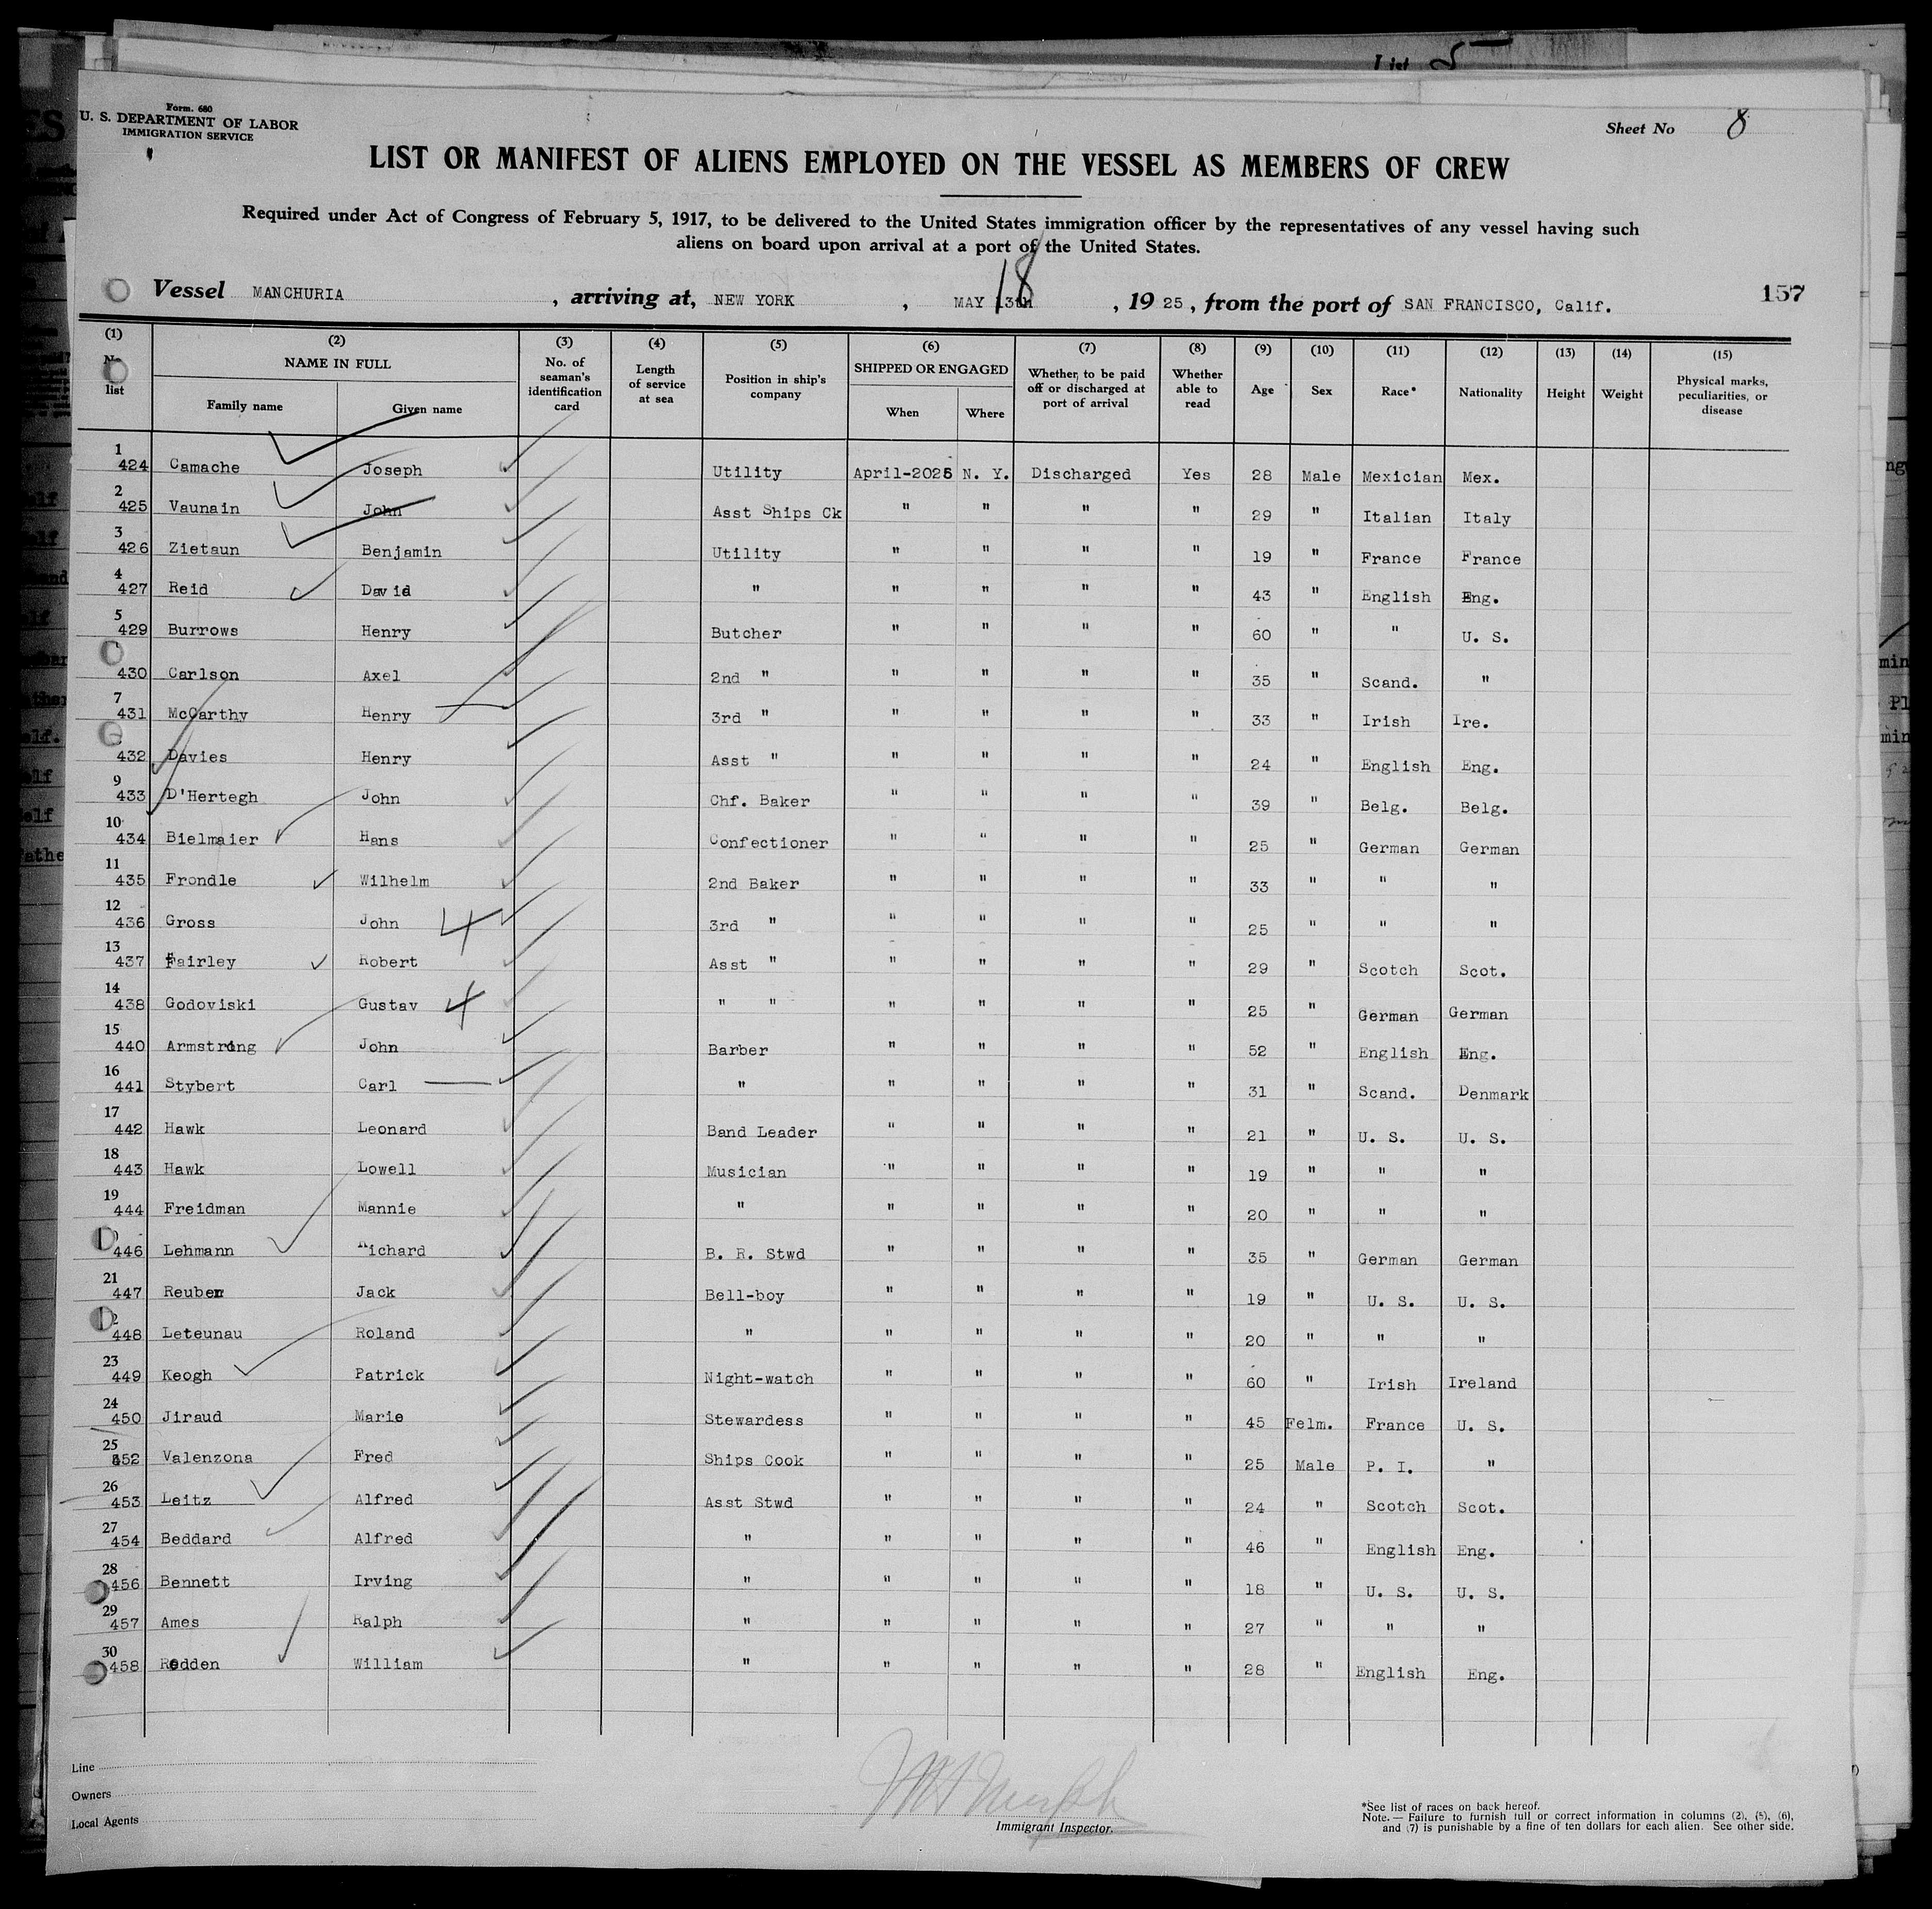 List 5
Form. 680
U. S. DEPARTMENT OF LABOR
IMMIGRATION SERVICE
Sheet No 8
LIST OR MANIFEST OF ALIENS EMPLOYED ON THE VESSEL AS MEMBERS OF CREW
Required under Act of Congress of February 5, 1917, to be delivered to the United States immigration officer by the representatives of any vessel having such
aliens on board upon arrival at a port of the United States.
Vessel MANCHURIA , arriving at, NEW YORK , MAY 13th 18 , 19 25 , from the port of SAN FRANCISCO, Calif. 157
(1) (2) (3) (4) (5) (6) (7) (8) (9) (10) (11) (12) (13) (14) (15)
No. list NAME IN FULL Family name Given name No. of seaman's identification card Length of service at sea Position in ship's company SHIPPED OR ENGAGED When Where Whether to be paid off or discharged at port of arrival Whether able to read Age Sex Race* Nationality Height Weight Physical marks, peculiarities, or disease
1 424 Camache Joseph Utility April-2025 N. Y. Discharged Yes 28 Male Mexician Mex.
2 425 Vaunain John Asst Ships Ck " " " " 29 " Italian Italy
3 426 Zietaun Benjamin Utility " " " " 19 " France France
4 427 Reid David " " " " " 43 " English Eng.
5 429 Burrows Henry Butcher " " " " 60 " " U. S.
430 Carlson Axel 2nd " " " " " 35 " Scand. "
7 431 McCarthy Henry 3rd " " " " " 33 " Irish Ire.
432 Davies Henry Asst " " " " " 24 " English Eng.
9 433 D'Hertegh John Chf. Baker " " " " 39 " Belg. Belg.
10 434 Bielmaier Hans Confectioner " " " " 25 " German German
11 435 Frondle Wilhelm 2nd Baker " " " " 33 " " "
12 436 Gross John 4 3rd " " " " " 25 " " "
13 437 Fairley Robert Asst " " " " " 29 " Scotch Scot.
14 438 Godoviski Gustav 4 " " " " " " 25 " German German
15 440 Armstrong John Barber " " " " 52 " English Eng.
16 441 Stybert Carl " " " " " 31 " Scand. Denmark
17 442 Hawk Leonard Band Leader " " " " 21 " U. S. U. S.
18 443 Hawk Lowell Musician " " " " 19 " " "
19 444 Freidman Mannie " " " " " 20 " " "
446 Lehmann Richard B. R. Stwd " " " " 35 " German German
21 447 Reuben Jack Bell-boy " " " " 19 " U. S. U. S.
448 Leteunau Roland " " " " " 20 " " "
23 449 Keogh Patrick Night-watch " " " " 60 " Irish Ireland
24 450 Jiraud Marie Stewardess " " " " 45 Felm. France U. S.
25 452 Valenzona Fred Ships Cook " " " " 25 Male P. I. "
26 453 Leitz Alfred Asst Stwd " " " " 24 " Scotch Scot.
27 454 Beddard Alfred " " " " " 46 " English Eng.
28 456 Bennett Irving " " " " " 18 " U. S. U. S.
29 457 Ames Ralph " " " " " 27 " " "
30 458 Redden William " " " " " 28 " English Eng.
Line
Owners
Local Agents
Immigrant Inspector.
*See list of races on back hereof.
Note.— Failure to furnish full or correct information in columns (2), (5), (6),
and (7) is punishable by a fine of ten dollars for each alien. See other side.